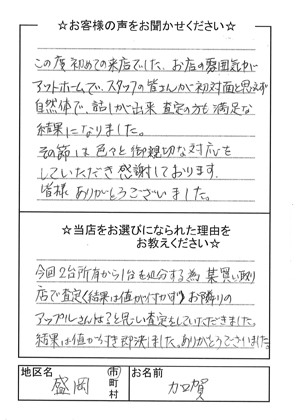 ☆お客様の声をお聞かせください☆
この度初めての来店でした。お店の雰囲気中に
アットホームで、スタッフの皆さんが初対面と思えず
自然体で、話しが出来 査定の方も満足な
結果になりました。
その節は色々と御親切な対応を
していただき感謝しております。
皆様ありがとうございました。
☆当店をお選びになられた理由を
お教えください☆
今回2台所有から1台を処分する為 某買い取り
店で査定(結果は値が付かず) お隣りの
アップルさんは?と思い査定をしていただきました。
結果は値が付き即決しました。ありがとうございました。
地区名
盛岡
市町村
お名前
加賀